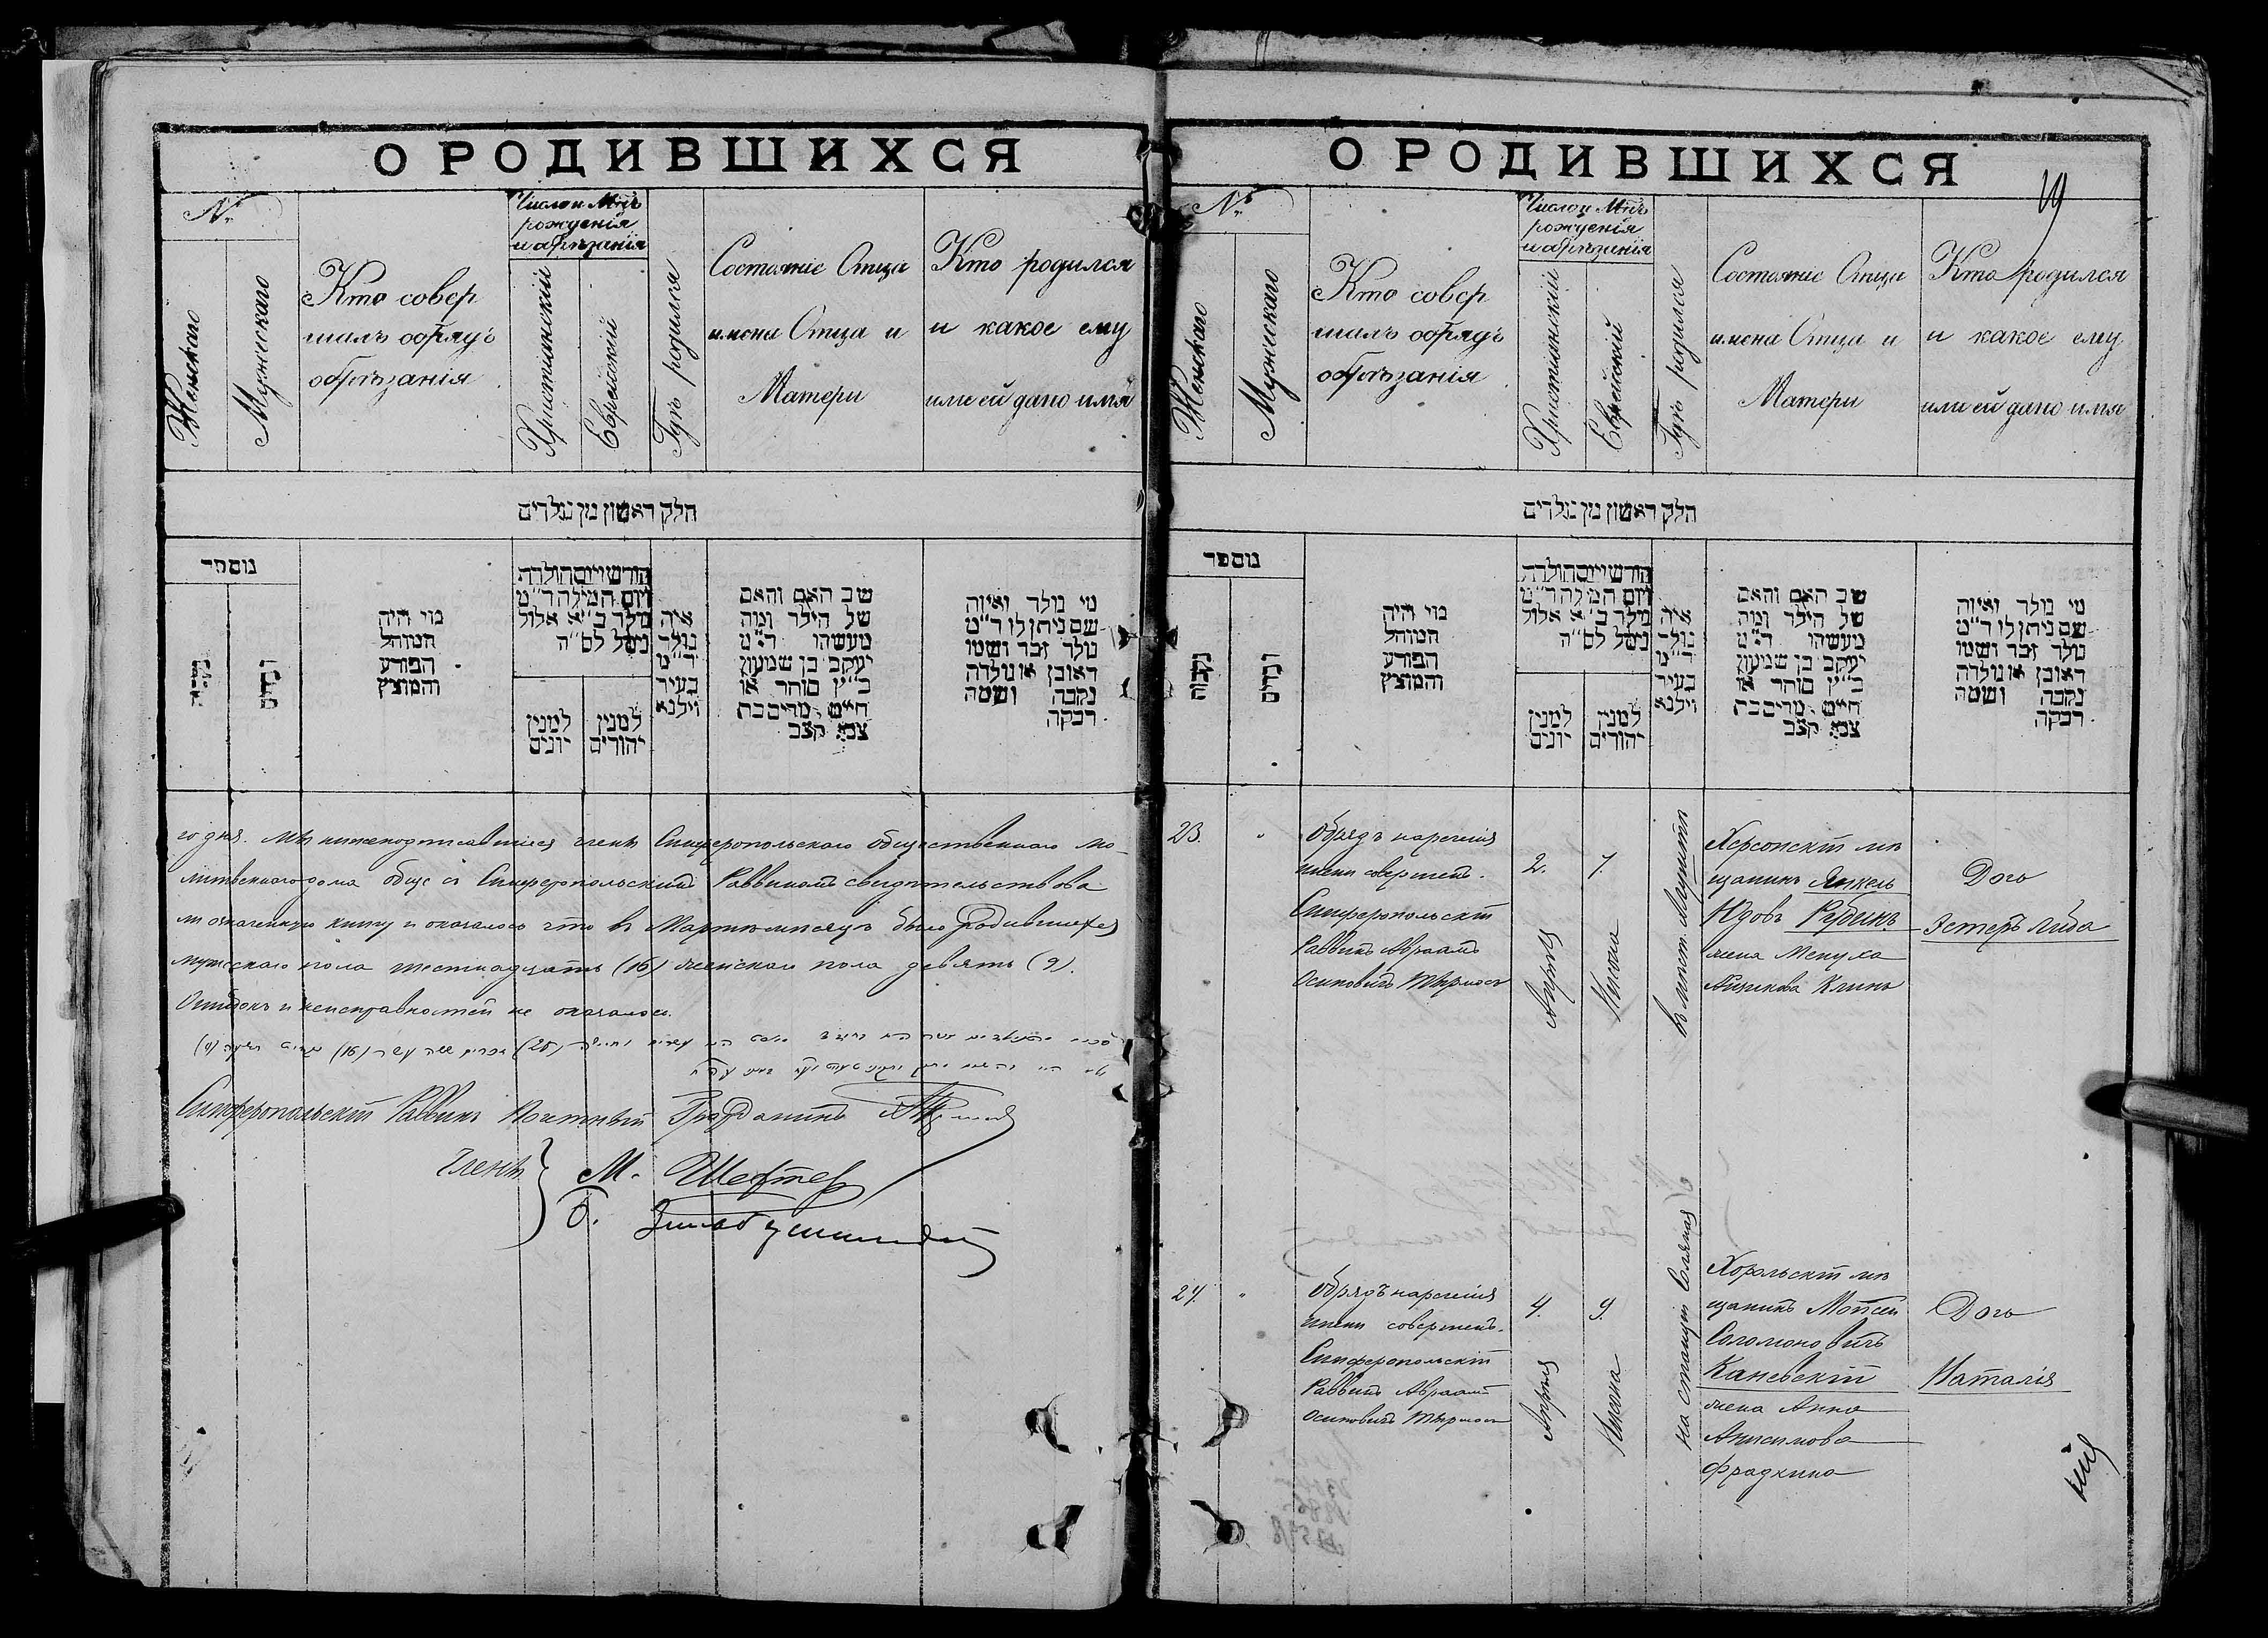 О РОДИВШИХСЯ
№
Женскаго
Мужескаго
Кто совер
шалъ обрядъ
обрѣзанія
Число и Мць
рожденія
и обрѣзанія
Христіанскій
Еврейскій
Гдѣ родился
Состояніе Отца
имена Отца и
Матери
Кто родился
и какое ему
или ей дано имя
חלק ראשון מן נולדים
נומפר
מי היה
המוהל
הפורע
והמוצץ
חודש ויום הולדת
ויום המילה ד״מ
נולד ב״א אלול
נימול לס״ה
למנין
יונים
למנין
יהודים
איה
נולד
ד״מ
בעיר
וילנא
שם האב והאם
של הילד ומה
מעשהו ד״מ
יעקב בן שמעון
כ״ץ סוחר או
חייט מרים בת
צבי קצב
מי נולד ואיזה
שם ניתן לו ד״מ
נולד זכר ושמו
ראובן או נולדה
נקבה ושמה
רבקה
го дня. Мы нижеподписавшіеся члены Симферопольскаго общественнаго мо-
литвеннаго дома обще съ Симферопольскимъ Раввиномъ свидѣтельствова
ли означенную книгу и оказалось что въ Мартѣ мѣсяцѣ было родившихся
мужескаго пола шестнадцать (16) женскаго пола девять (9).
Ошибокъ и неисправностей не оказалось.
(25) (16) (9)
Симферопольскій Раввинъ Почтный Гражданинъ
Члены
М. Шефтер
О.
О РОДИВШИХСЯ
19
№
Женскаго
Мужескаго
Кто совер
шалъ обрядъ
обрѣзанія
Число и Мць
рожденія
и обрѣзанія
Христіанскій
Еврейскій
Гдѣ родился
Состояніе Отца
имена Отца и
Матери
Кто родился
и какое ему
или ей дано имя
חלק ראשון מן נולדים
נומפר
נקבות
זכרים
מי היה
המוהל
הפורע
והמוצץ
חודש ויום הולדת
ויום המילה ד״מ
נולד ב״א אלול
נימול לס״ה
למנין
יונים
למנין
יהודים
איה
נולד
ד״מ
בעיר
וילנא
שם האב והאם
של הילד ומה
מעשהו ד״מ
יעקב בן שמעון
כ״ץ סוחר או
חייט מרים בת
צבי קצב
מי נולד ואיזה
שם ניתן לו ד״מ
נולד זכר ושמו
ראובן או נולדה
נקבה ושמה
רבקה
23. "
Обрядъ нареченія
имени совершилъ
Симферопольскій
Раввинъ Авраамъ
Осиповичъ
2.
Апрѣля
7.
Нисона
въ мѣст. Алуштѣ
Херсонскій мѣ
щанинъ Янкель
Юдовъ Рубинъ
жена Менуха
Айзикова Клинъ
Дочь
Эстеръ Либа
24. "
Обрядъ нареченія
имени совершилъ
Симферопольскій
Раввинъ Авраамъ
Осиповичъ
4.
Апрѣля
9.
Нисона
на станціи Соляная
Хорольскій мѣ
щанинъ Моисей
Соломоновичъ
Каневскій
жена Анна
Анисимова
Фрадкина
Дочь
Наталія